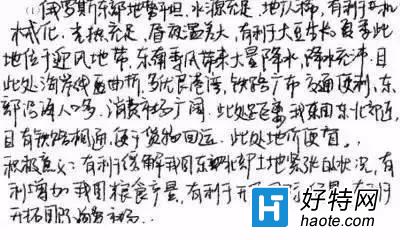 ①俄罗斯东部地势平坦,水源充足,地广人稀,有利于农机
械化,光热充足,昼夜温差大,有利于大豆生长,夏季此
地位于迎风地带,东南季风带来大量降水,降水充沛,且
此处海岸线曲折,多优良港湾,铁路广布,交通便利,东
部沿海人口多,消费市场广阔。此处距离我国东北部近,
且有铁路相通,便于货物回运。此处地价便宜。
积极意义:有利于缓解我国东北部土地紧张的状况,有
利增加我国粮食产量,有利于
开拓国际 市场.
好特网
haote.com